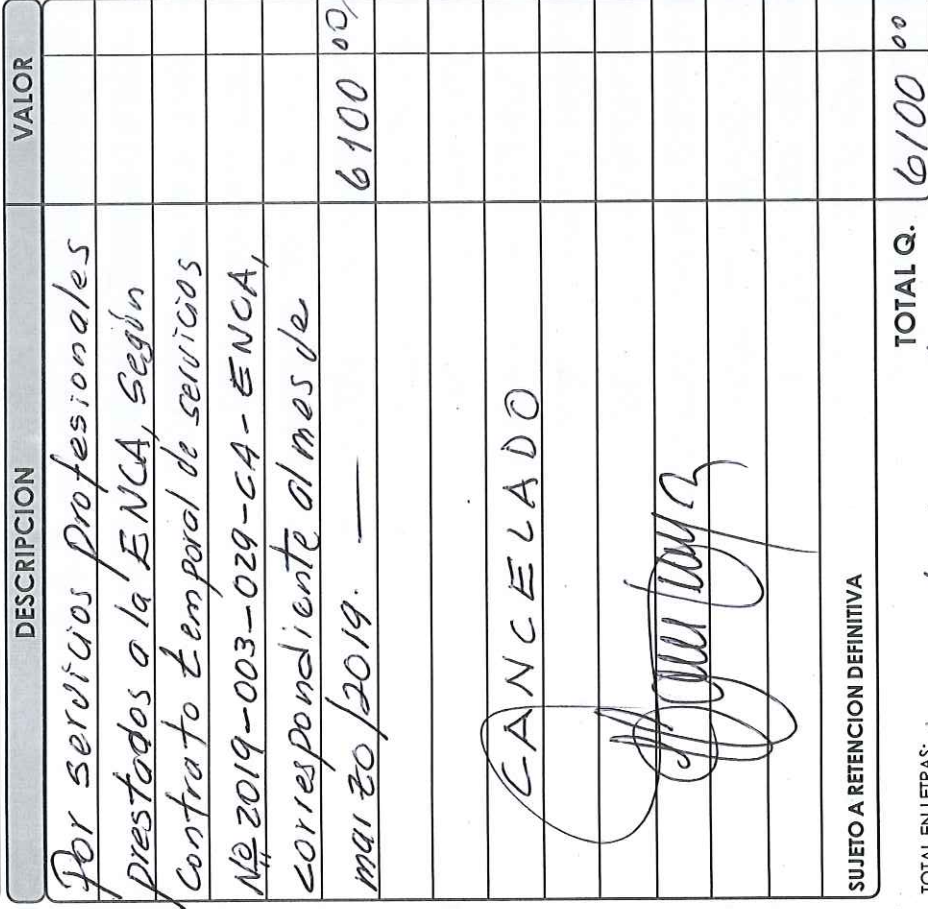 DESCRIPCION VALOR
Por servicios profesionales
prestados a la ENCA, según
Contrato temporal de servicios
Nº 2019-003-029-CA-ENCA,
correspondiente al mes de
marzo/2019. — 6100 00
CANCELADO
SUJETO A RETENCION DEFINITIVA
TOTAL Q. 6100 00
TOTAL EN LETRAS: